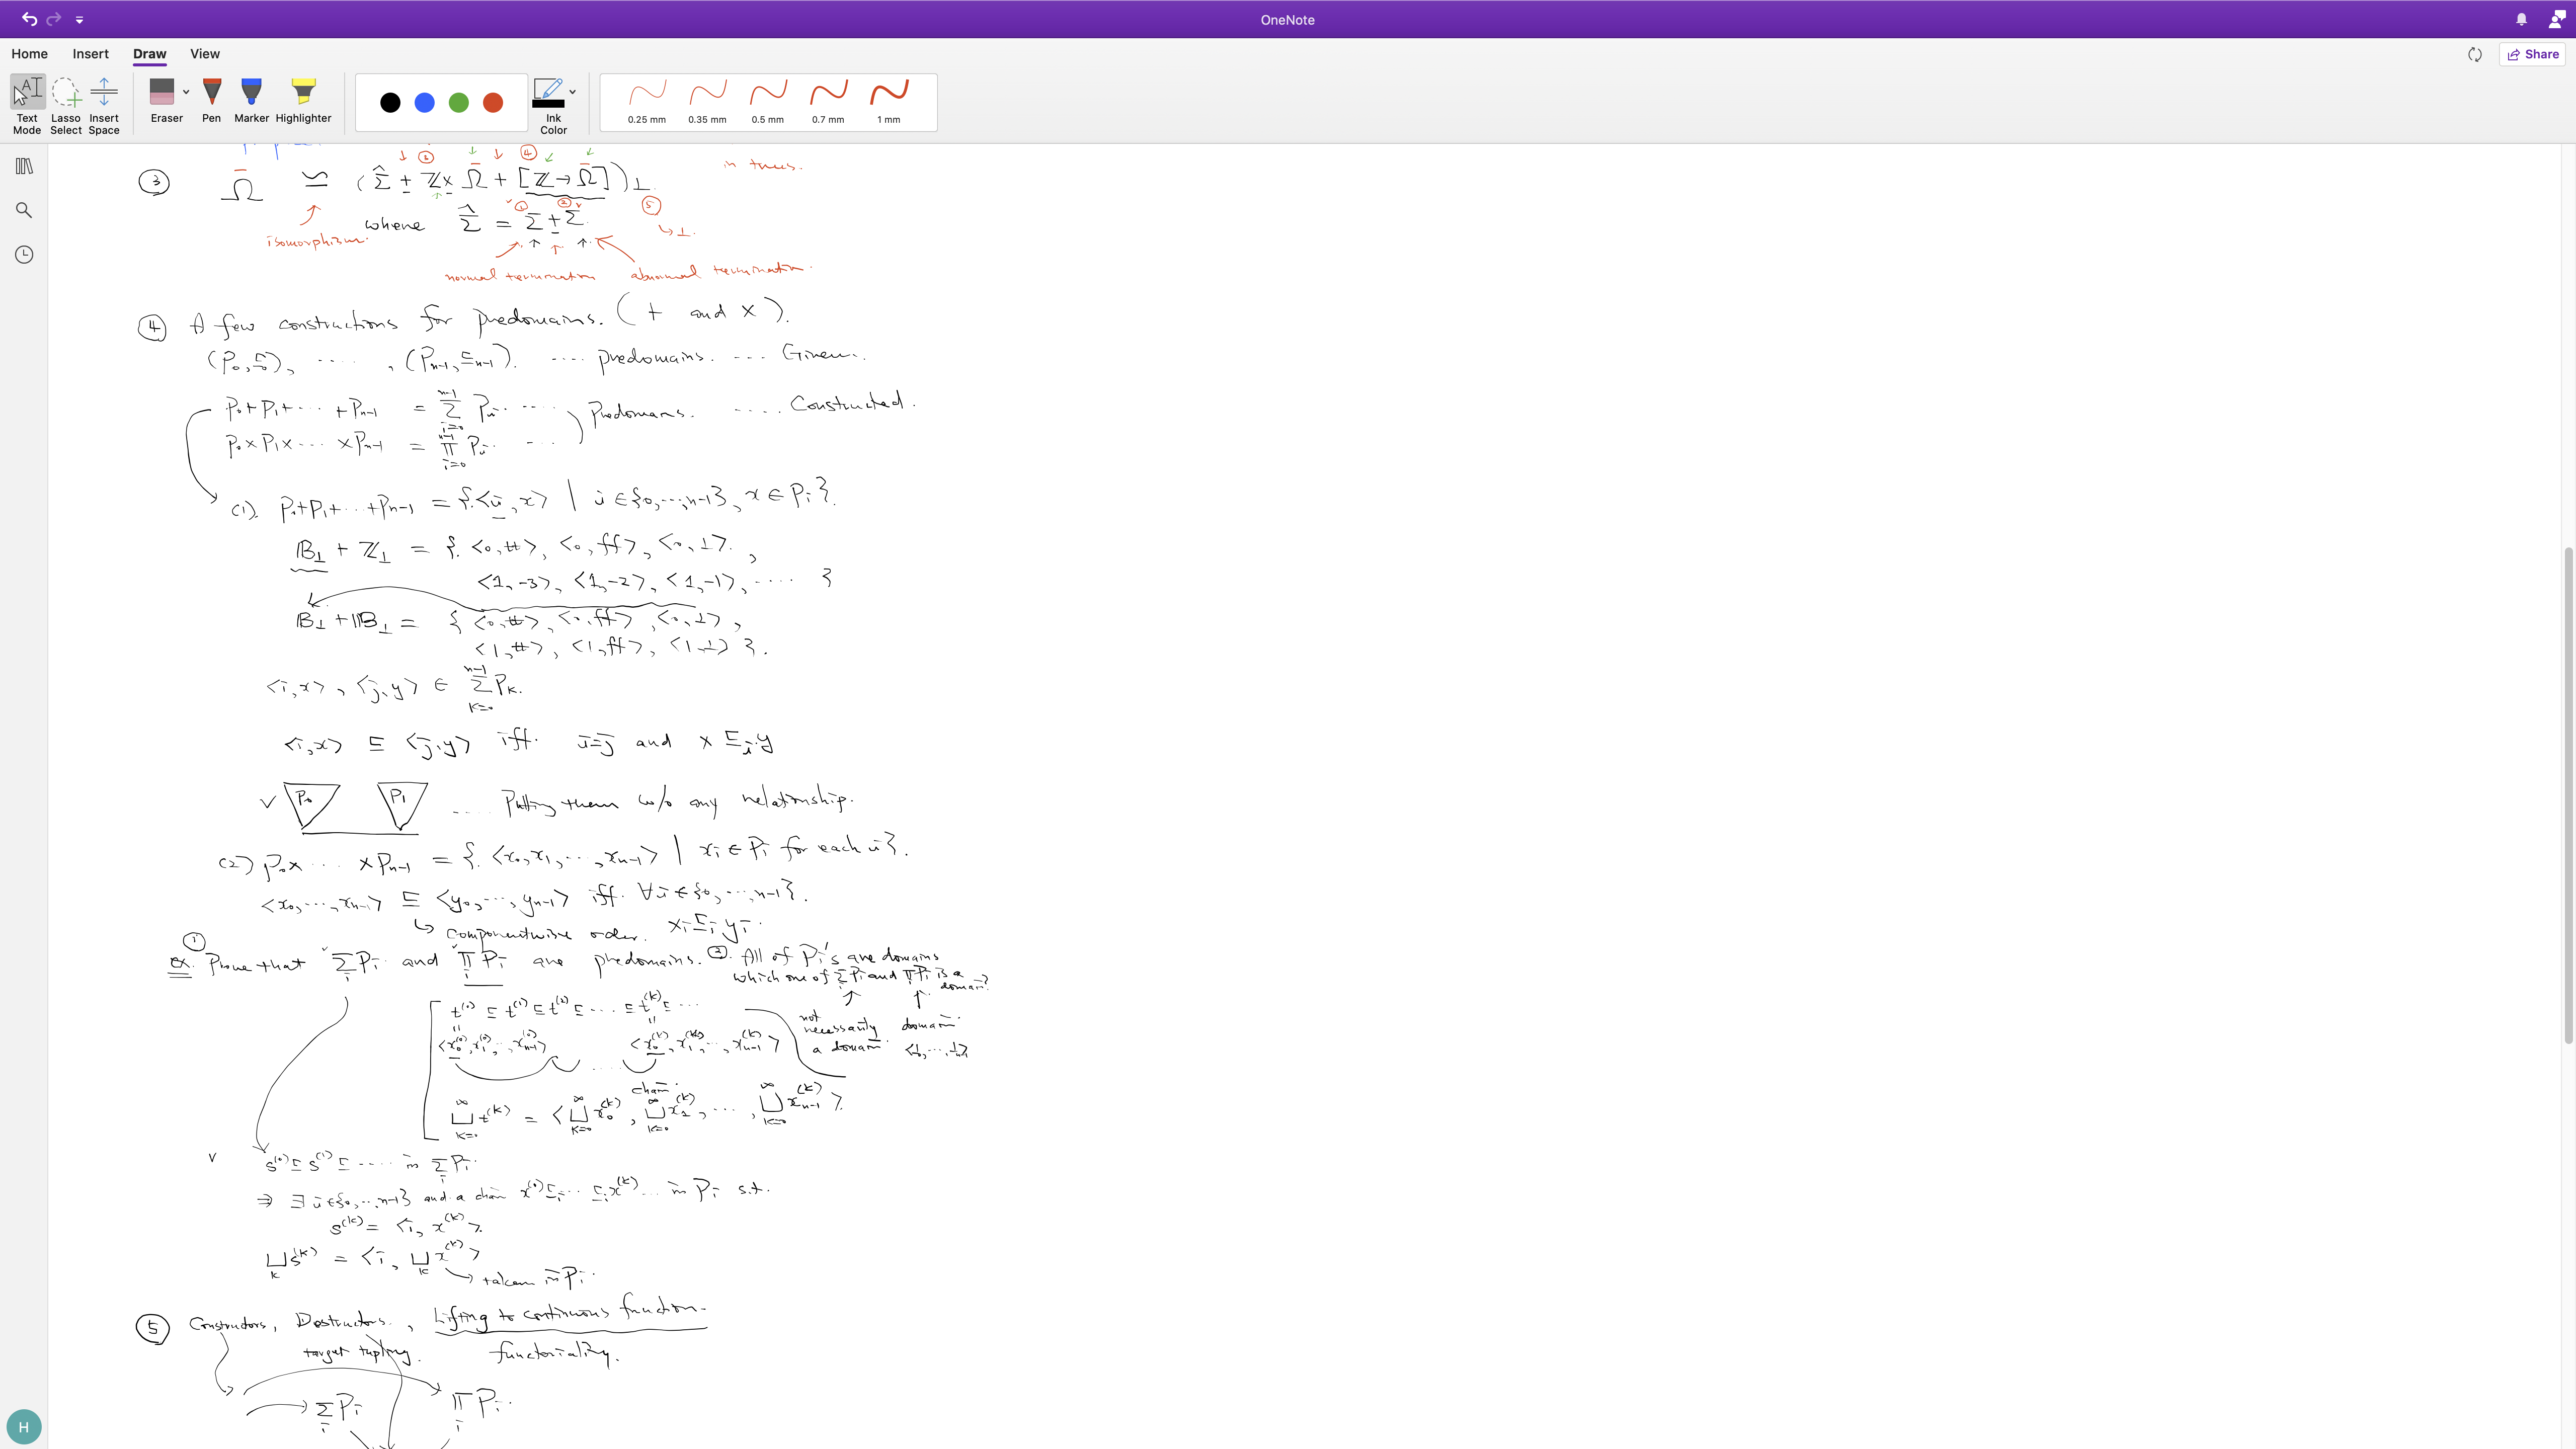 OneNote
Home Insert Draw View
Share
Text Mode
Lasso Select
Insert Space
Eraser
Pen
Marker
Highlighter
Ink Color
0.25 mm
0.35 mm
0.5 mm
0.7 mm
1 mm
in trees.
③ Ω ≃ (Σ̂ + ℤ × Ω + [ℤ → Ω])⊥
isomorphism. where Σ̂ = Σ + Σ
↳ ⊥.
normal termination abnormal termination.
④ A few constructions for predomains. (+ and ×).
(P₀, ⊑₀), ····· , (Pₙ₋₁, ⊑ₙ₋₁). ···· predomains. ··· Given.
P₀+P₁+···+Pₙ₋₁ = Σᵢ₌₀ⁿ⁻¹ Pᵢ ····
P₀×P₁×···×Pₙ₋₁ = Πᵢ₌₀ⁿ⁻¹ Pᵢ ···
Predomains. ···· Constructed.
(1). P₀+P₁+···+Pₙ₋₁ = {<i, x> | i ∈ {0,···,n-1}, x ∈ Pᵢ}.
𝔹⊥ + ℤ⊥ = {<0,tt>, <0,ff>, <0,⊥>,
<1,-3>, <1,-2>, <1,-1>, ···· }
𝔹⊥ + 𝔹⊥ = {<0,tt>, <0,ff>, <0,⊥>,
<1,tt>, <1,ff>, <1,⊥>}.
<i,x>, <j,y> ∈ Σₖ₌₀ⁿ⁻¹ Pₖ.
<i,x> ⊑ <j,y> iff. i=j and x ⊑ᵢ y
P₀ P₁ ···· Putting them w/o any relationship.
(2) P₀× ··· ×Pₙ₋₁ = {<x₀,x₁,···,xₙ₋₁> | xᵢ ∈ Pᵢ for each i}.
<x₀,···,xₙ₋₁> ⊑ <y₀,···,yₙ₋₁> iff. ∀i ∈ {0,···,n-1}.
↳ componentwise order. xᵢ ⊑ᵢ yᵢ.
①
Ex. Prove that Σᵢ Pᵢ and Πᵢ Pᵢ are predomains. ②. All of Pᵢ's are domains
which one of Σᵢ Pᵢ and Πᵢ Pᵢ is a domain?
t⁽⁰⁾ ⊑ t⁽¹⁾ ⊑ t⁽²⁾ ⊑ ··· ⊑ t⁽ᵏ⁾ ⊑ ···
<x₀⁽⁰⁾, x₁⁽⁰⁾, ··, xₙ₋₁⁽⁰⁾> <x₀⁽ᵏ⁾, x₁⁽ᵏ⁾, ··, xₙ₋₁⁽ᵏ⁾>
not necessarily a domain.
domain. <⊥₀,···,⊥ₙ₋₁>
chain.
⊔ₖ₌₀^∞ t⁽ᵏ⁾ = <⊔ₖ₌₀^∞ x₀⁽ᵏ⁾, ⊔ₖ₌₀^∞ x₁⁽ᵏ⁾, ···, ⊔ₖ₌₀^∞ xₙ₋₁⁽ᵏ⁾>.
s⁽⁰⁾ ⊑ s⁽¹⁾ ⊑ ···· in Σᵢ Pᵢ.
⇒ ∃ i∈{0,··,n-1} and a chain x⁽⁰⁾ ⊑ᵢ ··· ⊑ᵢ x⁽ᵏ⁾ ··· in Pᵢ s.t.
s⁽ᵏ⁾ = <i, x⁽ᵏ⁾>.
⊔ₖ s⁽ᵏ⁾ = <i, ⊔ₖ x⁽ᵏ⁾>
→ taken in Pᵢ.
⑤ Constructors, Destructors, Lifting to continuous function.
target tupling. functoriality.
Σᵢ Pᵢ Πᵢ Pᵢ.
H